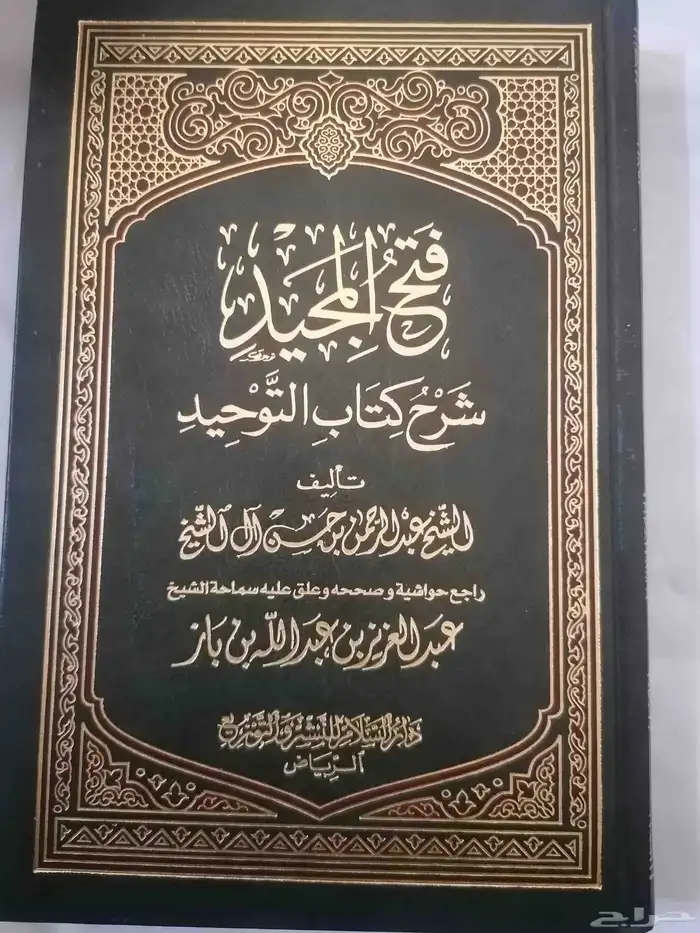 فَتْحُ المَجِيْدِ
شَرْحُ كِتَابِ التَّوْحِيدِ
تأليف
الشيخ عبد الرحمن بن حسن آل الشيخ
راجع حواشية وصححه وعلق عليه سماحة الشيخ
عبد العزيز بن عبد الله بن باز
دار السلام للنشر والتوزيع
الرياض
حراج